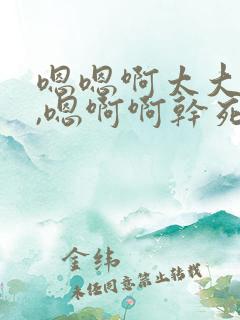 嗯嗯啊太大
,嗯啊啊幹死
金纬
未经同意禁止转载